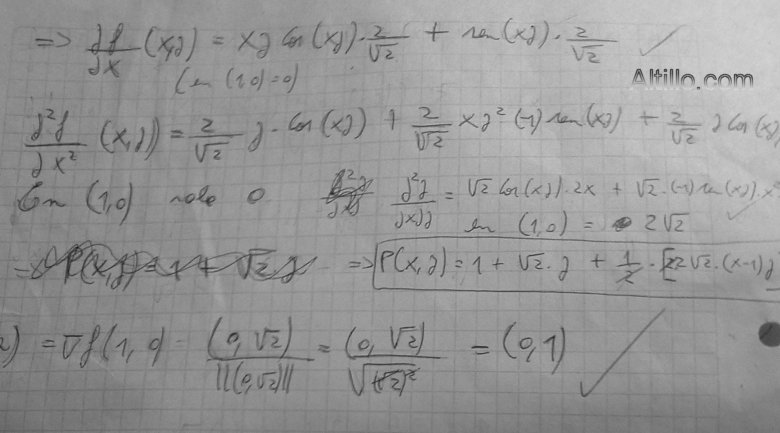 => ∂f/∂x (x,y) = xy cos(xy) · 2/√2 + sen(xy) · 2/√2 ✓
Altillo.com
(en (1,0) = 0)
∂²f/∂x² (x,y) = 2/√2 y · cos(xy) + 2/√2 xy² (-1) sen(xy) + 2/√2 y cos(xy)
En (1,0) vale 0 ∂²f/∂x∂y = √2 cos(xy) · 2x + √2 · (-1) sen(xy) · x²
en (1,0) = 2√2 ✓
=> P(x,y) = 1 + √2 y => P(x,y) = 1 + √2 · y + 1/2 · [2 2√2 · (x-1) y
= ∇f(1,0) (0,√2)/||(0,√2)|| = (0,√2)/√(√2)² = (0,1) ✓